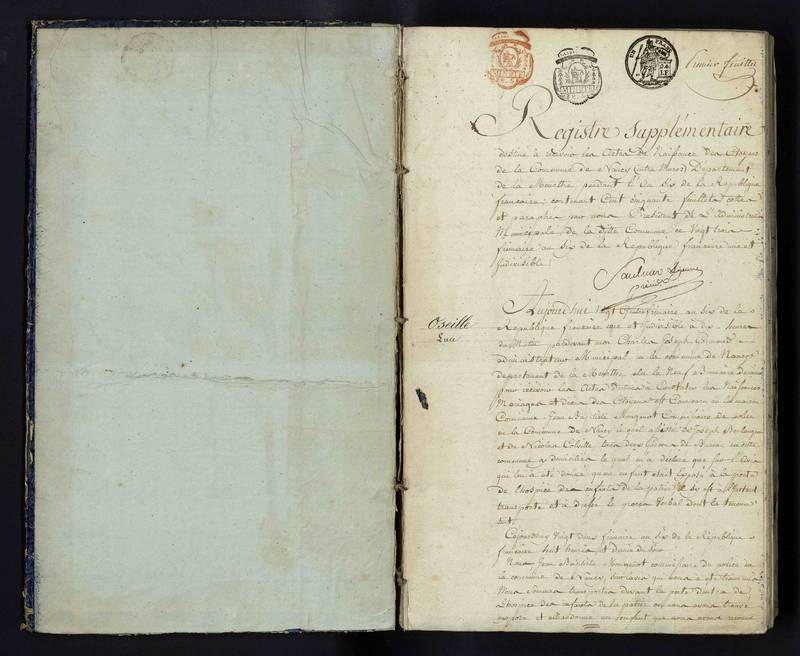 Premier feuillet
Registre supplémentaire
destiné à recevoir les Actes de Naissance des Citoyens
de la Commune de Nancy (intra Muros) Département
de la Meurthe pendant l'An Six de la République
française; contenant Cent cinquante feuillets cotés
et paraphés par nous Président de L'Administration
Municipale de la ditte Commune ce Vingt trois
frimaire an Six de la République française une et
Indivisible.
Saulnier
Oseille
Luce
Aujourd'hui Vingt frimaire an Six de la
République française une et Indivisible à dix heures
du Matin pardevant moi Charles Joseph
administrateur Municipal de la commune de Nancy
département de la Meurthe élu le Neuf
pour recevoir les Actes destinés à Constater les Naissances
Mariages et décès des Citoyens est Comparu en la maison
Commune Jean Baptiste Mougenot Commissaire de police
de la Commune de Nancy lequel assisté de Joseph Boulanger
et de Nicolas tous deux de en cette
commune y domiciliés le quel m'a déclaré que sur l'avis
qui lui a été donné qu'un enfant était exposé à la porte
de l'hospice des enfants de la patrie il s'y est à l'instant
transporté et a dressé le procès Verbal dont la teneur
suit.
Cejourdhui Vingt deux frimaire an Six de la République
française huit heures et demie du soir
Nous Jean Baptiste Mougenot commissaire de police de
la commune de Nancy, sur l'avis qui nous a été transmis
Nous sommes transportés devant la porte d'entrée de
L'hospice des enfants de la patrie où nous avons trouvé
exposé et abandonné un enfant que nous avons